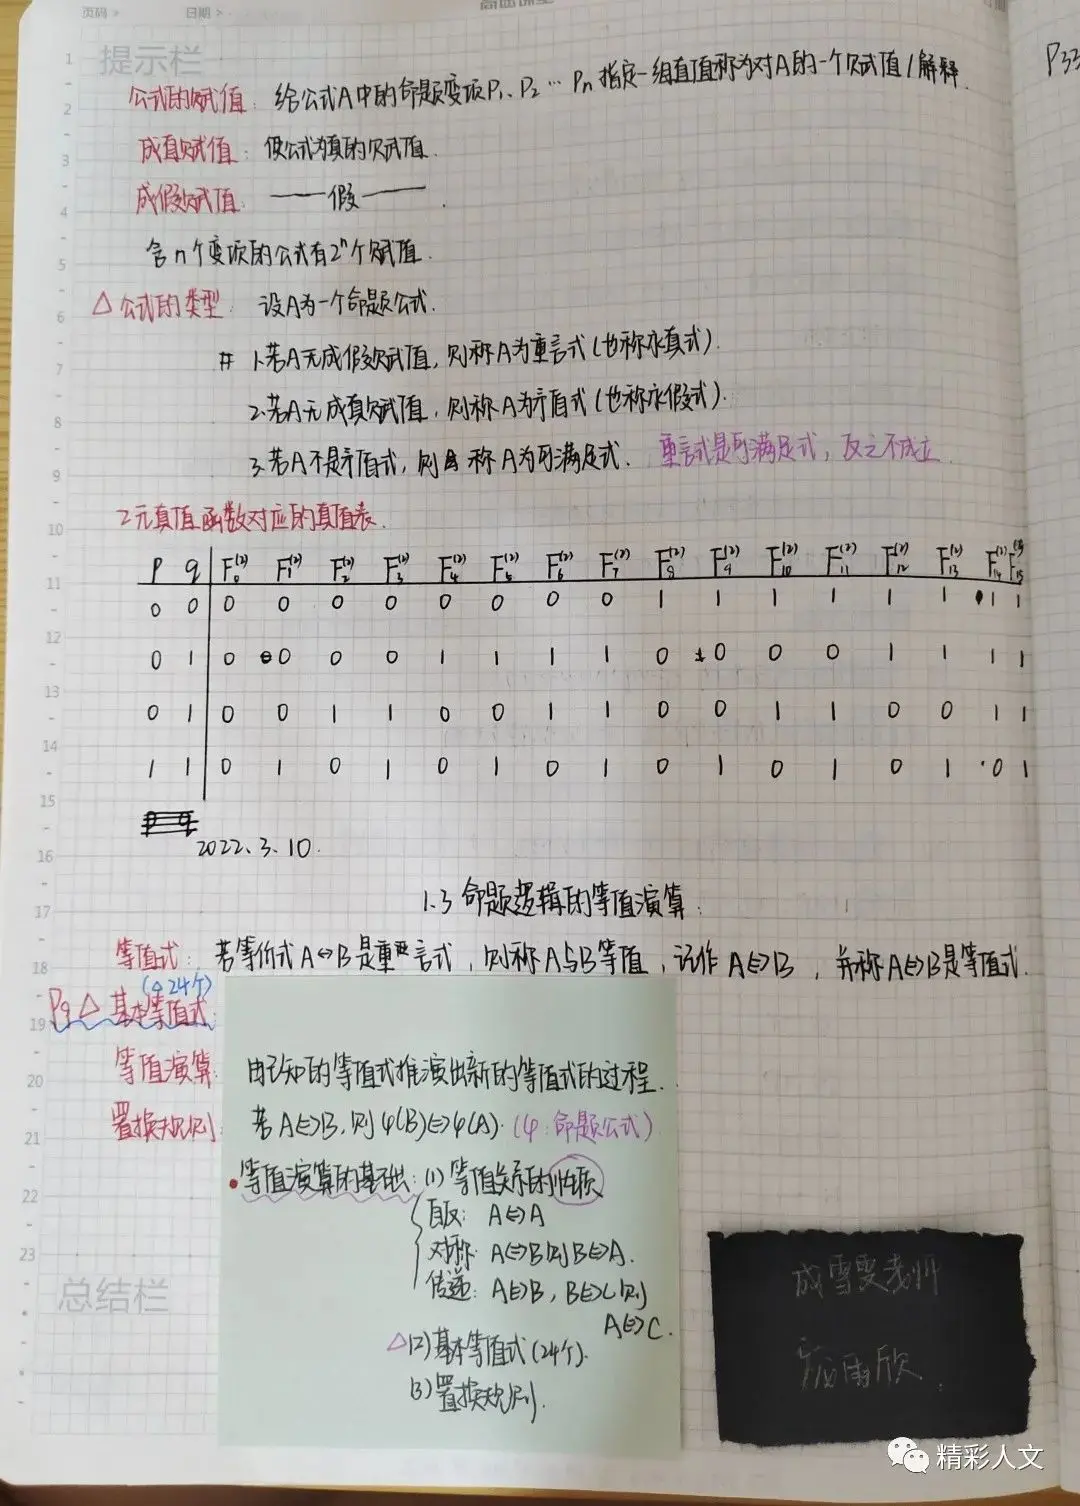 页码> 日期>
提示栏
P33
公式的赋值: 给公式A中的命题变项P₁、P₂…Pn指定一组真值称为对A的一个赋值/解释.
成真赋值: 使公式为真的赋值.
成假赋值: ——假——.
含n个变项的公式有2ⁿ个赋值.
△公式的类型: 设A为一个命题公式.
# 1.若A无成假赋值,则称A为重言式(也称永真式).
2.若A无成真赋值,则称A为矛盾式(也称永假式).
3.若A不是矛盾式,则 称A为可满足式. 重言式是可满足式,反之不成立.
2元真值函数对应的真值表.
P q F₀⁽²⁾ F₁⁽²⁾ F₂⁽²⁾ F₃⁽²⁾ F₄⁽²⁾ F₅⁽²⁾ F₆⁽²⁾ F₇⁽²⁾ F₈⁽²⁾ F₉⁽²⁾ F₁₀⁽²⁾ F₁₁⁽²⁾ F₁₂⁽²⁾ F₁₃⁽²⁾ F₁₄⁽²⁾ F₁₅⁽²⁾
0 0 0 0 0 0 0 0 0 0 1 1 1 1 1 1 1 1
0 1 0 0 0 0 1 1 1 1 0 0 0 0 1 1 1 1
0 1 0 0 1 1 0 0 1 1 0 0 1 1 0 0 1 1
1 1 0 1 0 1 0 1 0 1 0 1 0 1 0 1 0 1
2022.3.10.
1.3 命题逻辑的等值演算.
等值式: 若等价式A↔B是重言式,则称A与B等值,记作A⇔B,并称A⇔B是等值式.
(24个)
P9 △ 基本等值式:
等值演算: 由已知的等值式推演出新的等值式的过程.
置换规则: 若A⇔B,则φ(B)⇔φ(A). (φ:命题公式)
•等值演算的基础: (1) 等值关系的性质
自反: A⇔A
对称: A⇔B则B⇔A.
传递: A⇔B,B⇔C则
A⇔C.
△(2)基本等值式(24个).
(3)置换规则.
总结栏
成雪雯老师
雨欣
精彩人文